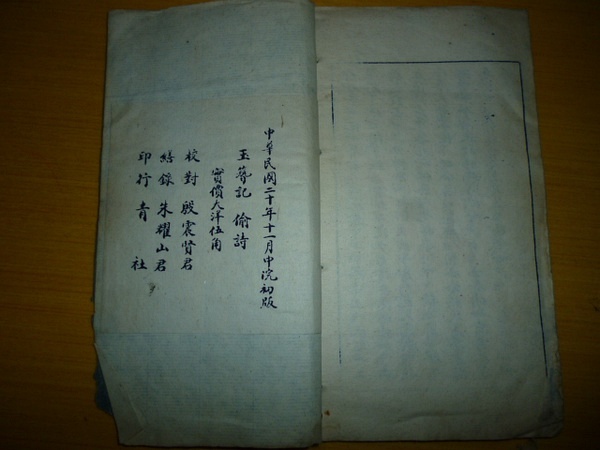 中華民國二十年十一月中浣初版
玉簪記 偷詩
實價大洋伍角
校對 殷震賢君
繕錄 朱耀山君
印行 青社